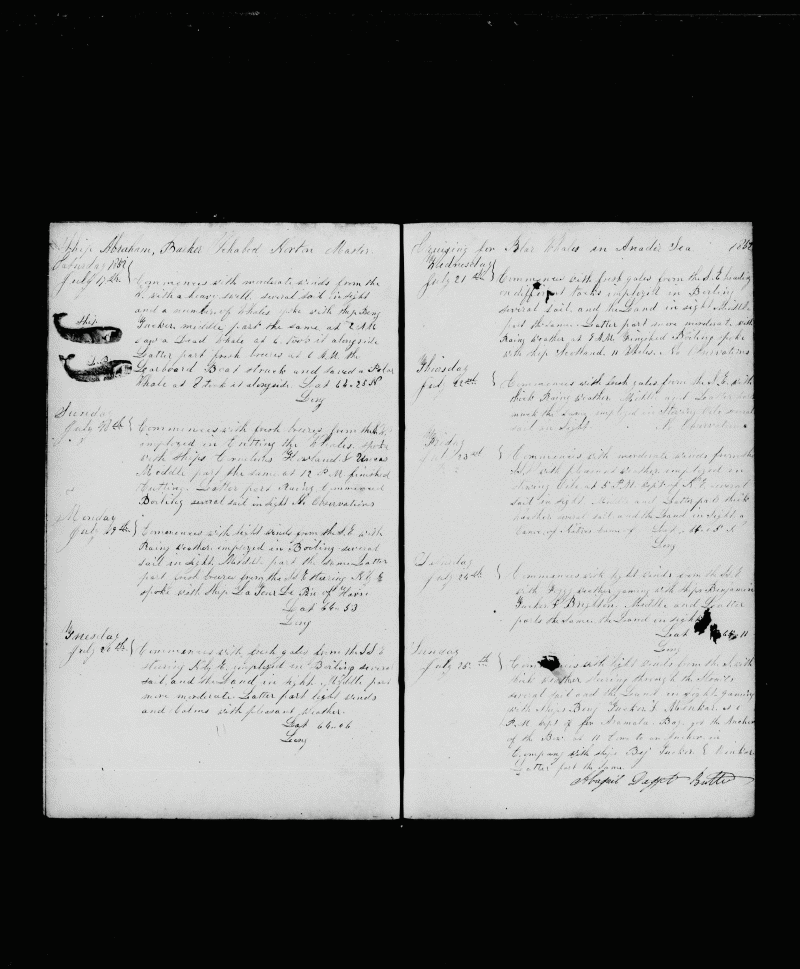 Ship Abraham Barker Ichabod Norton Master
Saturday 1852
July 17th Commences with moderate winds from the
N. with a heavy swell, several sail in sight
and a number of Whales spoke with Ship Benj
Tucker. middle part the same at 2 AM
a Dead Whale at 6 took it alongside
Latter part fresh breeses at 6 AM the
Larboard Boat struck and saved a Polar
Whale at 8 took it alongside Lat 64-25 N
Long
Ship
Sunday
July 18th Commences with fresh breeses from the
imployed in Cutting the Whales. spoke
with Ships Cornelius Howland & Uncas
Middle part the same at 12 P.M. finished
Cutting. Latter part Rainy Commenced
Boiling several sail in sight No Observations
Monday
July 19th Commences with light winds from the S.E. with
Rainy weather. employed in Boiling several
sail in sight, Middle part the same Latter
part fresh breeses from the S.E. stearing N by E
spoke with Ship
Lat 64-53
Long
Tuesday
July 20th Commences with fresh gales from the S.S.E.
stearing N by E. imployed in Boiling several
sail and the Land in sight Middle part
more moderate Latter part light winds
and Calms with pleasant weather.
Lat 64-06
Long
Cruising for Whales in Anadir Sea 1852
Wednesday
July 21st Commences with fresh gales from the S.E. heading
on different tacks imployed in Boiling
several sail and the Land in sight Middle
part the same. Latter part more moderate with
Rainy weather at 8 AM Finished Boiling spoke
with Ship Scotland 11 Whales. No Observations
Thursday
July 22nd Commences with fresh gales from the S.E. with
thick Rainy weather Middle and Latter part
much the same employed in Stowing Oile several
sail in sight No Observations
Friday
July 23rd Commences with moderate winds from the
with pleasant weather employed in
stowing Oile at 5 P.M. kept of N.E. several
sail in sight Middle and Latter part thick
weather several sail and the Land in sight a
Canoe of Natives came of Lat
Long
Saturday
July 24th Commences with light winds from the
with Foggy weather gaming with Ships Benjamin
Tucker & Brighton. Middle and Latter
parts the same. the Land in sight
Lat 11
Long
Sunday
July 25th with light winds from the
thick weather stearing through the
several sail and the Land in sight. Gaming
with Ships Benj Tucker & at 1
P.M. kept of for Bay. got the
of the Bay at 11 Came to an Anchor in
Company with Ships Benj Tucker &
Latter part the same